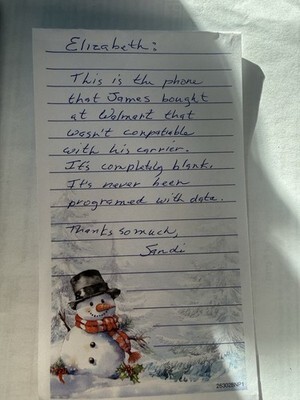 Elizabeth:
This is the phone
that James bought
at Walmart that
wasn't conpatiable
with his carrier.
It's completly blank.
It's never been
programed with data.
Thanks so much,
Sandi